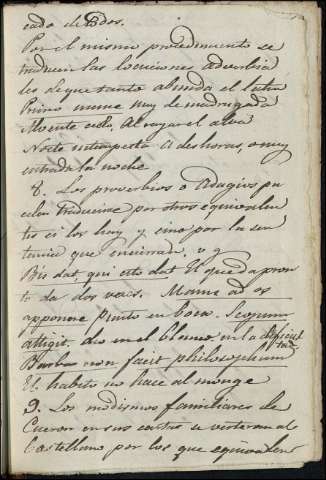 cado de Edos.
Por el mismo procedimiento se
traducen las locuciones adverbia
les de que tanto abunda el latin
Primo mane muy de madrugada
Albente cielo, al rayar el alva
Nocte intempesta a deshoras o muy
entrada la noche
8. Los proverbios o Adagios pu
eden traducirse por otros equivalen
tes si los hay y sino por la sen
tencia que encierran, v g
Bis dat, qui cito dat El que da pron
to da dos veces. Manum ad os
apponere Punto en boca. Scopum
attigit dio en el blanco, en la dificul
tad.
Barba non facit philosophum
El habito no hace al monge
9. Los modismos familiares de
Ciceron en sus cartas se verteran al
Castellano por los que equivalen